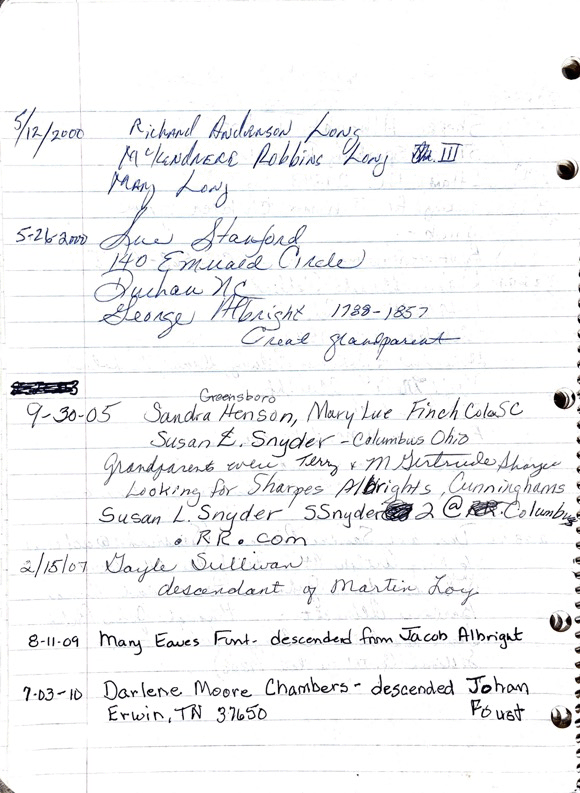 5/12/2000 Richard Anderson Long
McKendneree Robbins Long III
Mary Long
5-26-2000 Sue Stanford
140 Emuald Circle
Durham NC
George Albright 1788-1857
Great grandparent
Greensboro
9-30-05 Sandra Henson, Mary Lue Finch Cola SC
Susan L. Snyder - Columbus Ohio
Grandparents were Terry & M Gertrude Sharpe
Looking for Sharpes Albrights, Cunninghams
Susan L. Snyder SSnyder 2 @ Columbus
. RR. com
2/15/07 Gayle Sullivan
descendant of Martin Loy
8-11-09 Mary Eaves Funt- descended from Jacob Albright
7-03-10 Darlene Moore Chambers - descended Johan
Erwin, TN 37650 Foust